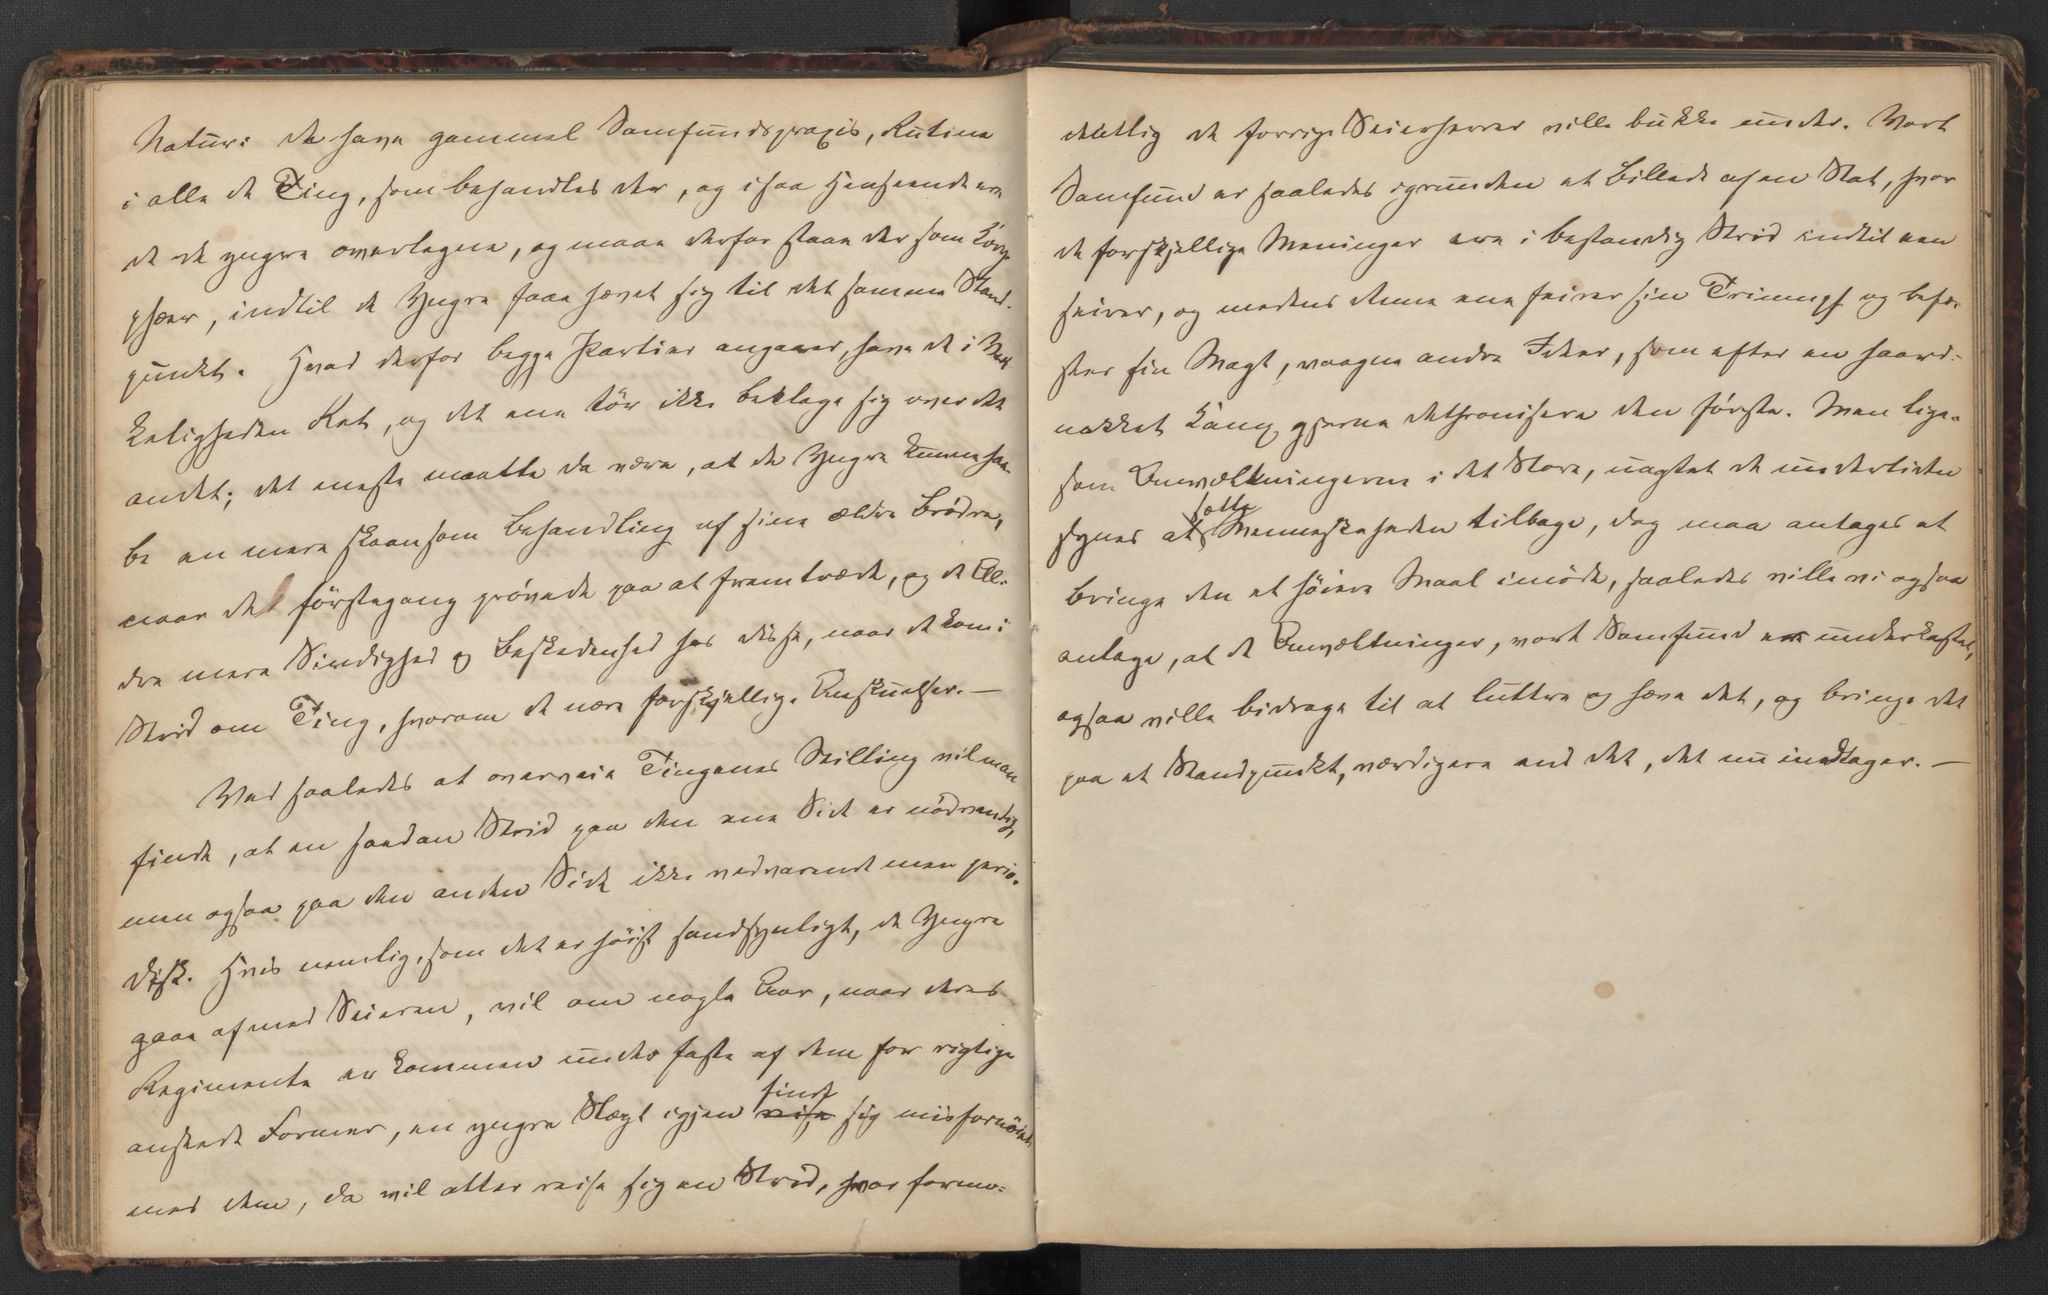 Natur: de have gammel Samfundspraxis, Rutine
i alle de Ting, som behandles der, og i saa Henseende ere
de de yngre overlegne, og maae derfor staae der som Kory-
phæer, indtil de Yngre faae hævet sig til det samme Stand-
punkt. Hvad derfor begge Partier angaaer, have de i Vir-
keligheden Ret, og det ene tör ikke beklage sig over det
andet; det meste maatte da være, at de Yngre kunne haa-
be en mere skaansom Behandling af sine ældre Brödre,
naar de förstegang prövede paa at fremtræde, og de Æl-
dre mere Sindighed og Beskedenhed hos disse, naar de kom i
Strid om Ting, hvorom de nære forskjellige Anskuelser. —
Ved saaledes at overveie Tingenes Stilling vil man
finde, at en saadan Strid paa den ene Side er nödvendig,
men ogsaa paa den anden Side ikke vedvarende men perio-
disk. Hvis nemlig, som det er höist sandsynligt, de Yngre
gaae af med Seieren, vil om nogle Aar, naar deres
Regimente er kommen under faste af dem for rigtige
ansete Former, en yngre Slægt igjen finde sig misfornöiet
med dem, da vil atter reise sig en Strid, hvor formo-
dentlig de forrige Seierherrer ville bukke under. Vort
Samfund er saaledes igrunden et Billede af en Stat, hvor
de forskjellige Meninger ere i bestandig Strid indtil een
seirer, og medens denne ene feirer sin Triumph og befæ-
ster sin Magt, vaagne andre Ideer, som efter en haard-
nakket Kamp gjerne dethronisere den förste. Men lige-
som Omvæltningerne i det Store, uagtet de undertiden
synes at sætte Menneskeheden tilbage, dog maa antages at
bringe den et höiere Maal imöde, saaledes ville vi ogsaa
antage, at de Omvæltninger, vort Samfund er underkastet,
ogsaa ville bidrage til at luttre og hæve det, og bringe det
paa et Standpunkt, værdigere end det, det nu indtager. —